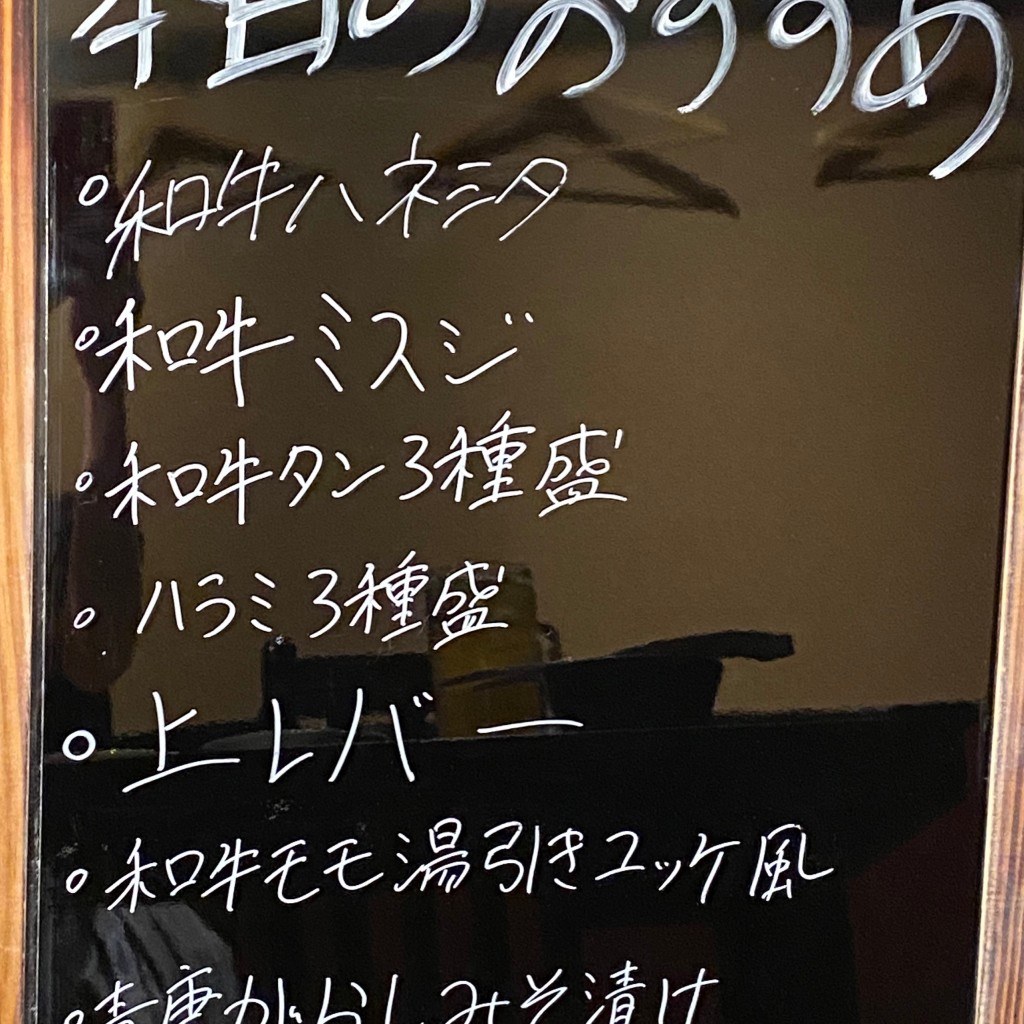 本日のおすすめ
○和牛ハネミタ
○和牛ミスジ
○和牛タン3種盛
○ハラミ3種盛
○上レバー
○和牛モモ湯引きユッケ風
○青唐がらしみそ漬け